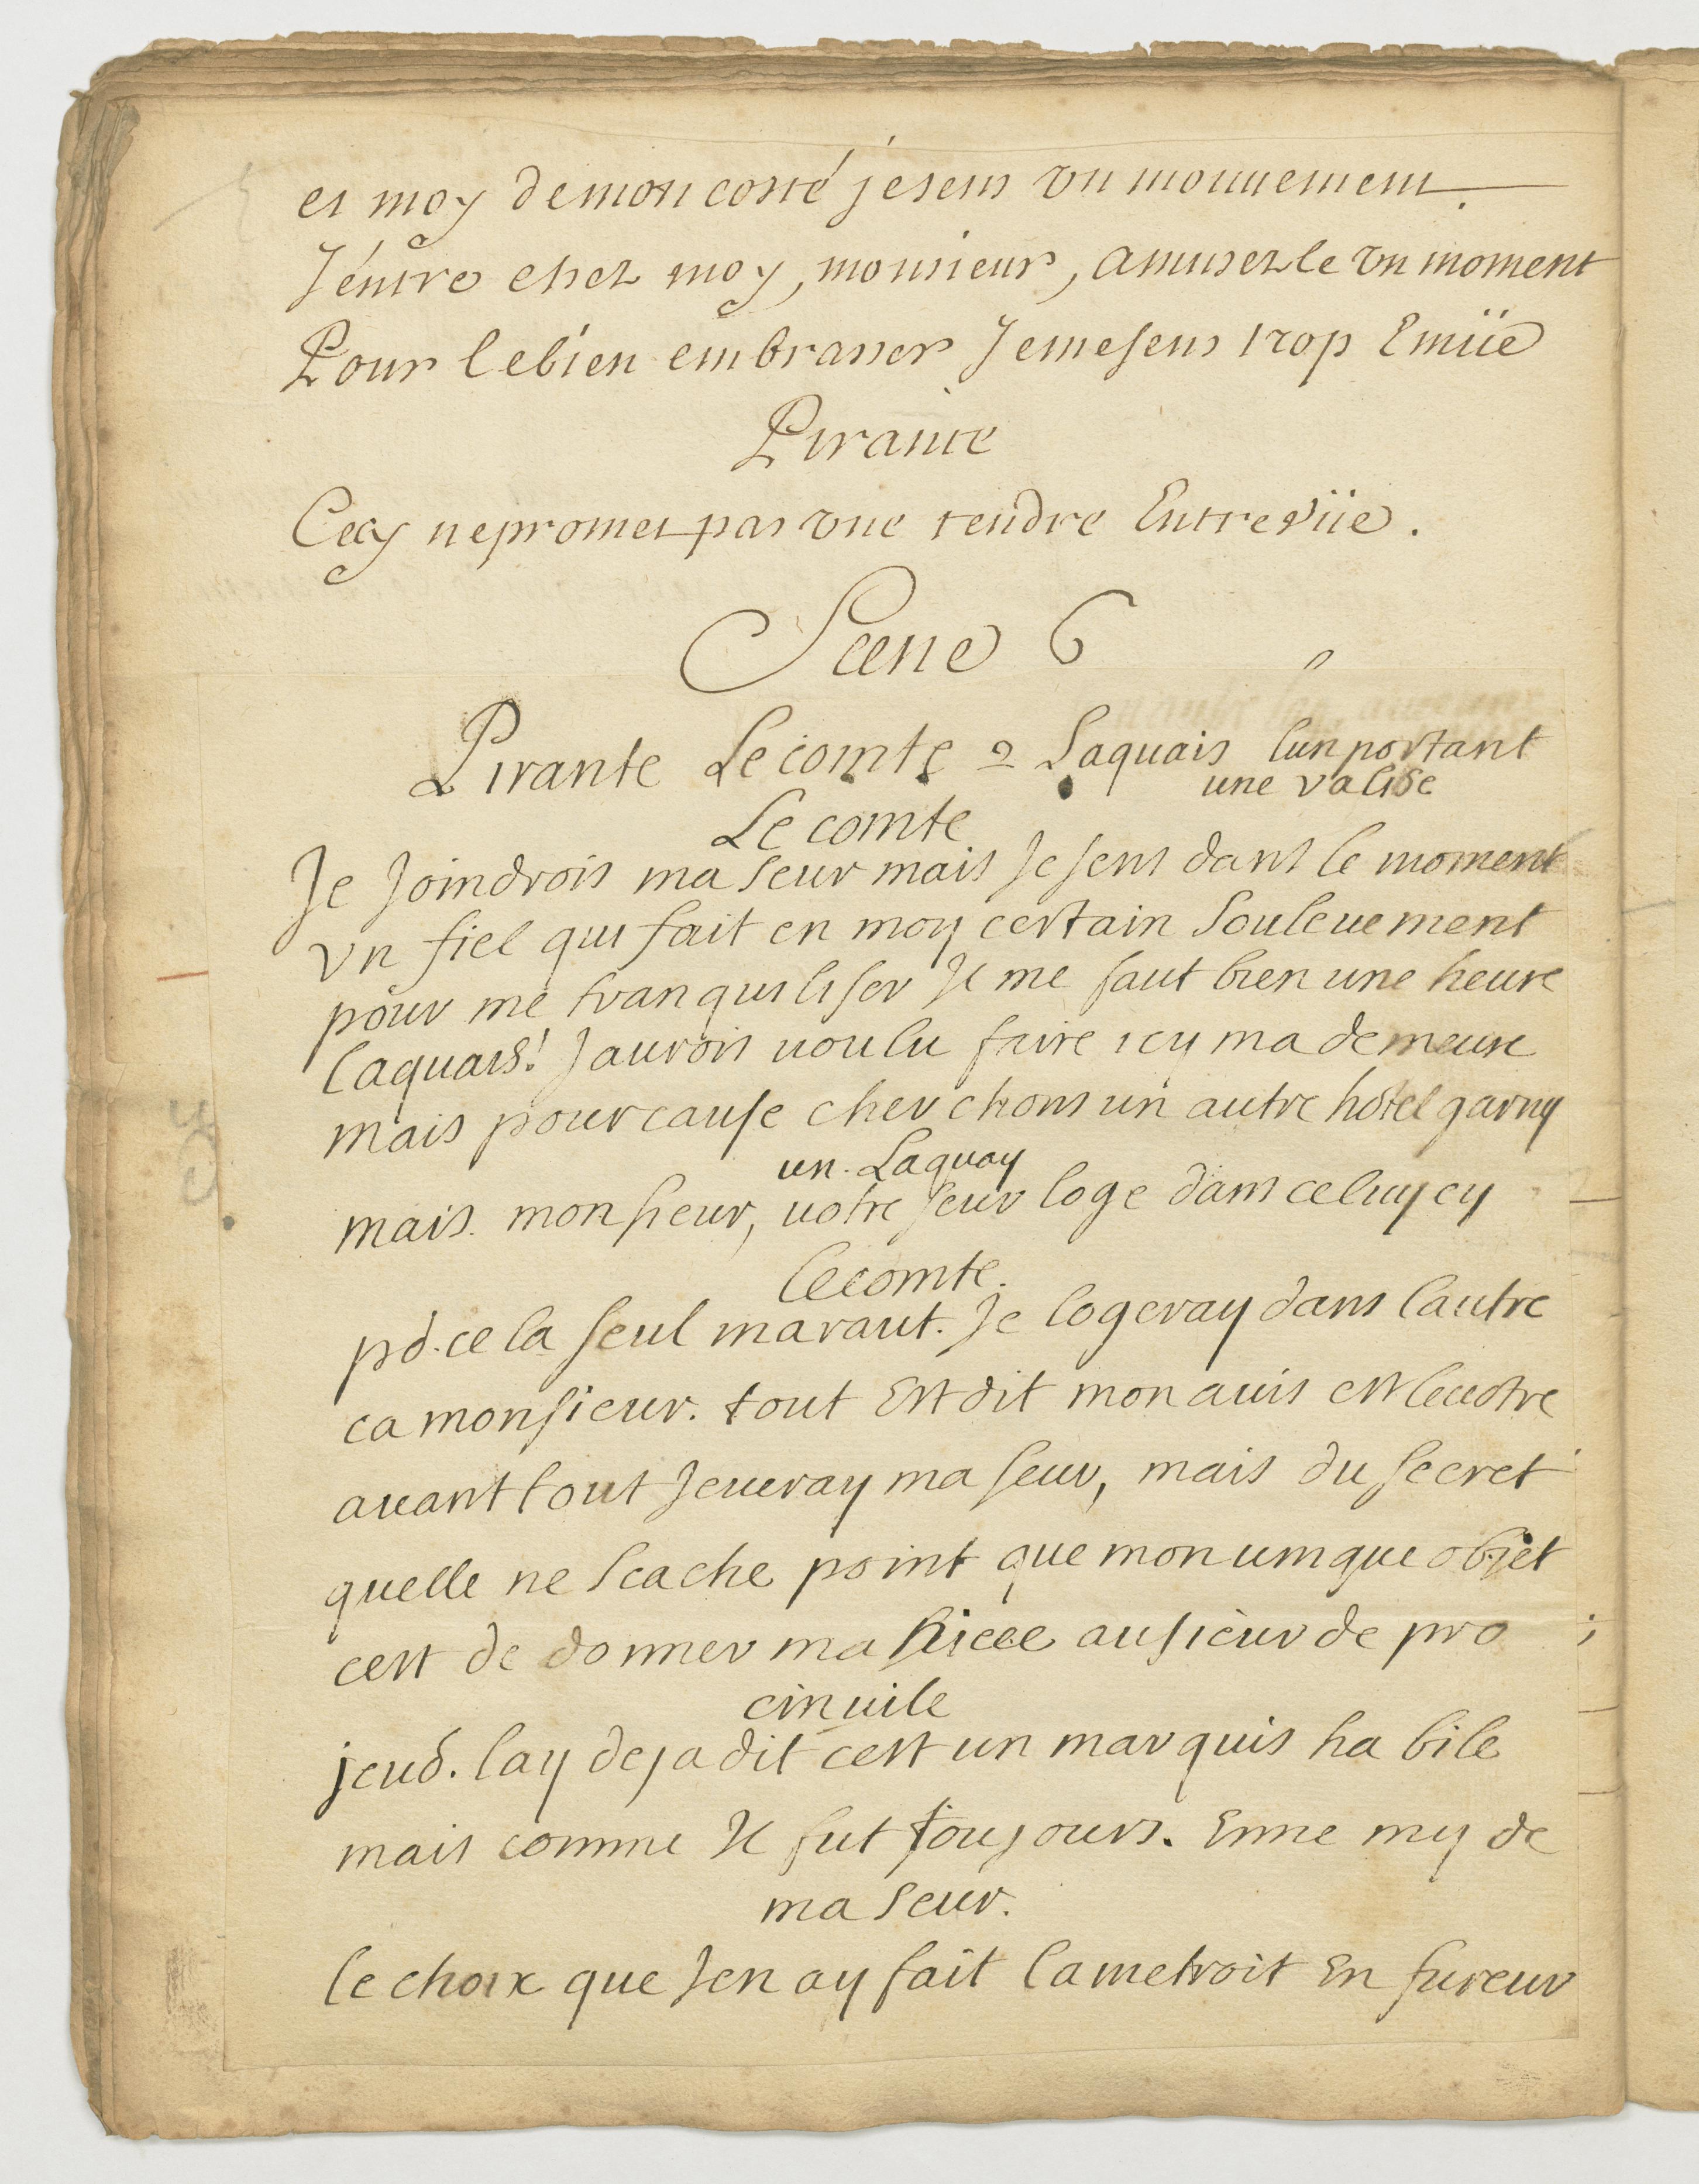 et moy de mon costé je sens vn mouuement.
J'entre chez moy, monsieur, amusez le vn moment
Pour le bien embrasser Je me sens trop Emüe
Pirante
Cecy ne promet pas vne tendre Entreüe.
Scene 6
Pirante Le comte 2 Laquais l'un portant
une valise
Le comte
Je Joindrois ma seur mais Je sens dans le moment
vn fiel qui fait en moy certain souleuement
pour me tranquiliser Il me faut bien une heure
laquais! J aurois uoulu faire icy ma demeure
mais pour cause cherchons un autre hotel garny
un. Laquay
mais. monsieur, uotre seur loge dans celuy cy
le comte.
po. cela seul maraut. Je logeray dans lautre
ca monsieur. tout Est dit mon auis est le uotre
auant tout Je ueray ma seur, mais du secret
quelle ne scache point que mon unique objet
cest de donner ma niece au sieur de pro
cinuile
je uo. lay deja dit cest un marquis habile
mais comme Il fut toujours. Ennemy de
ma seur.
le choix que Jen ay fait la metroit En fureur